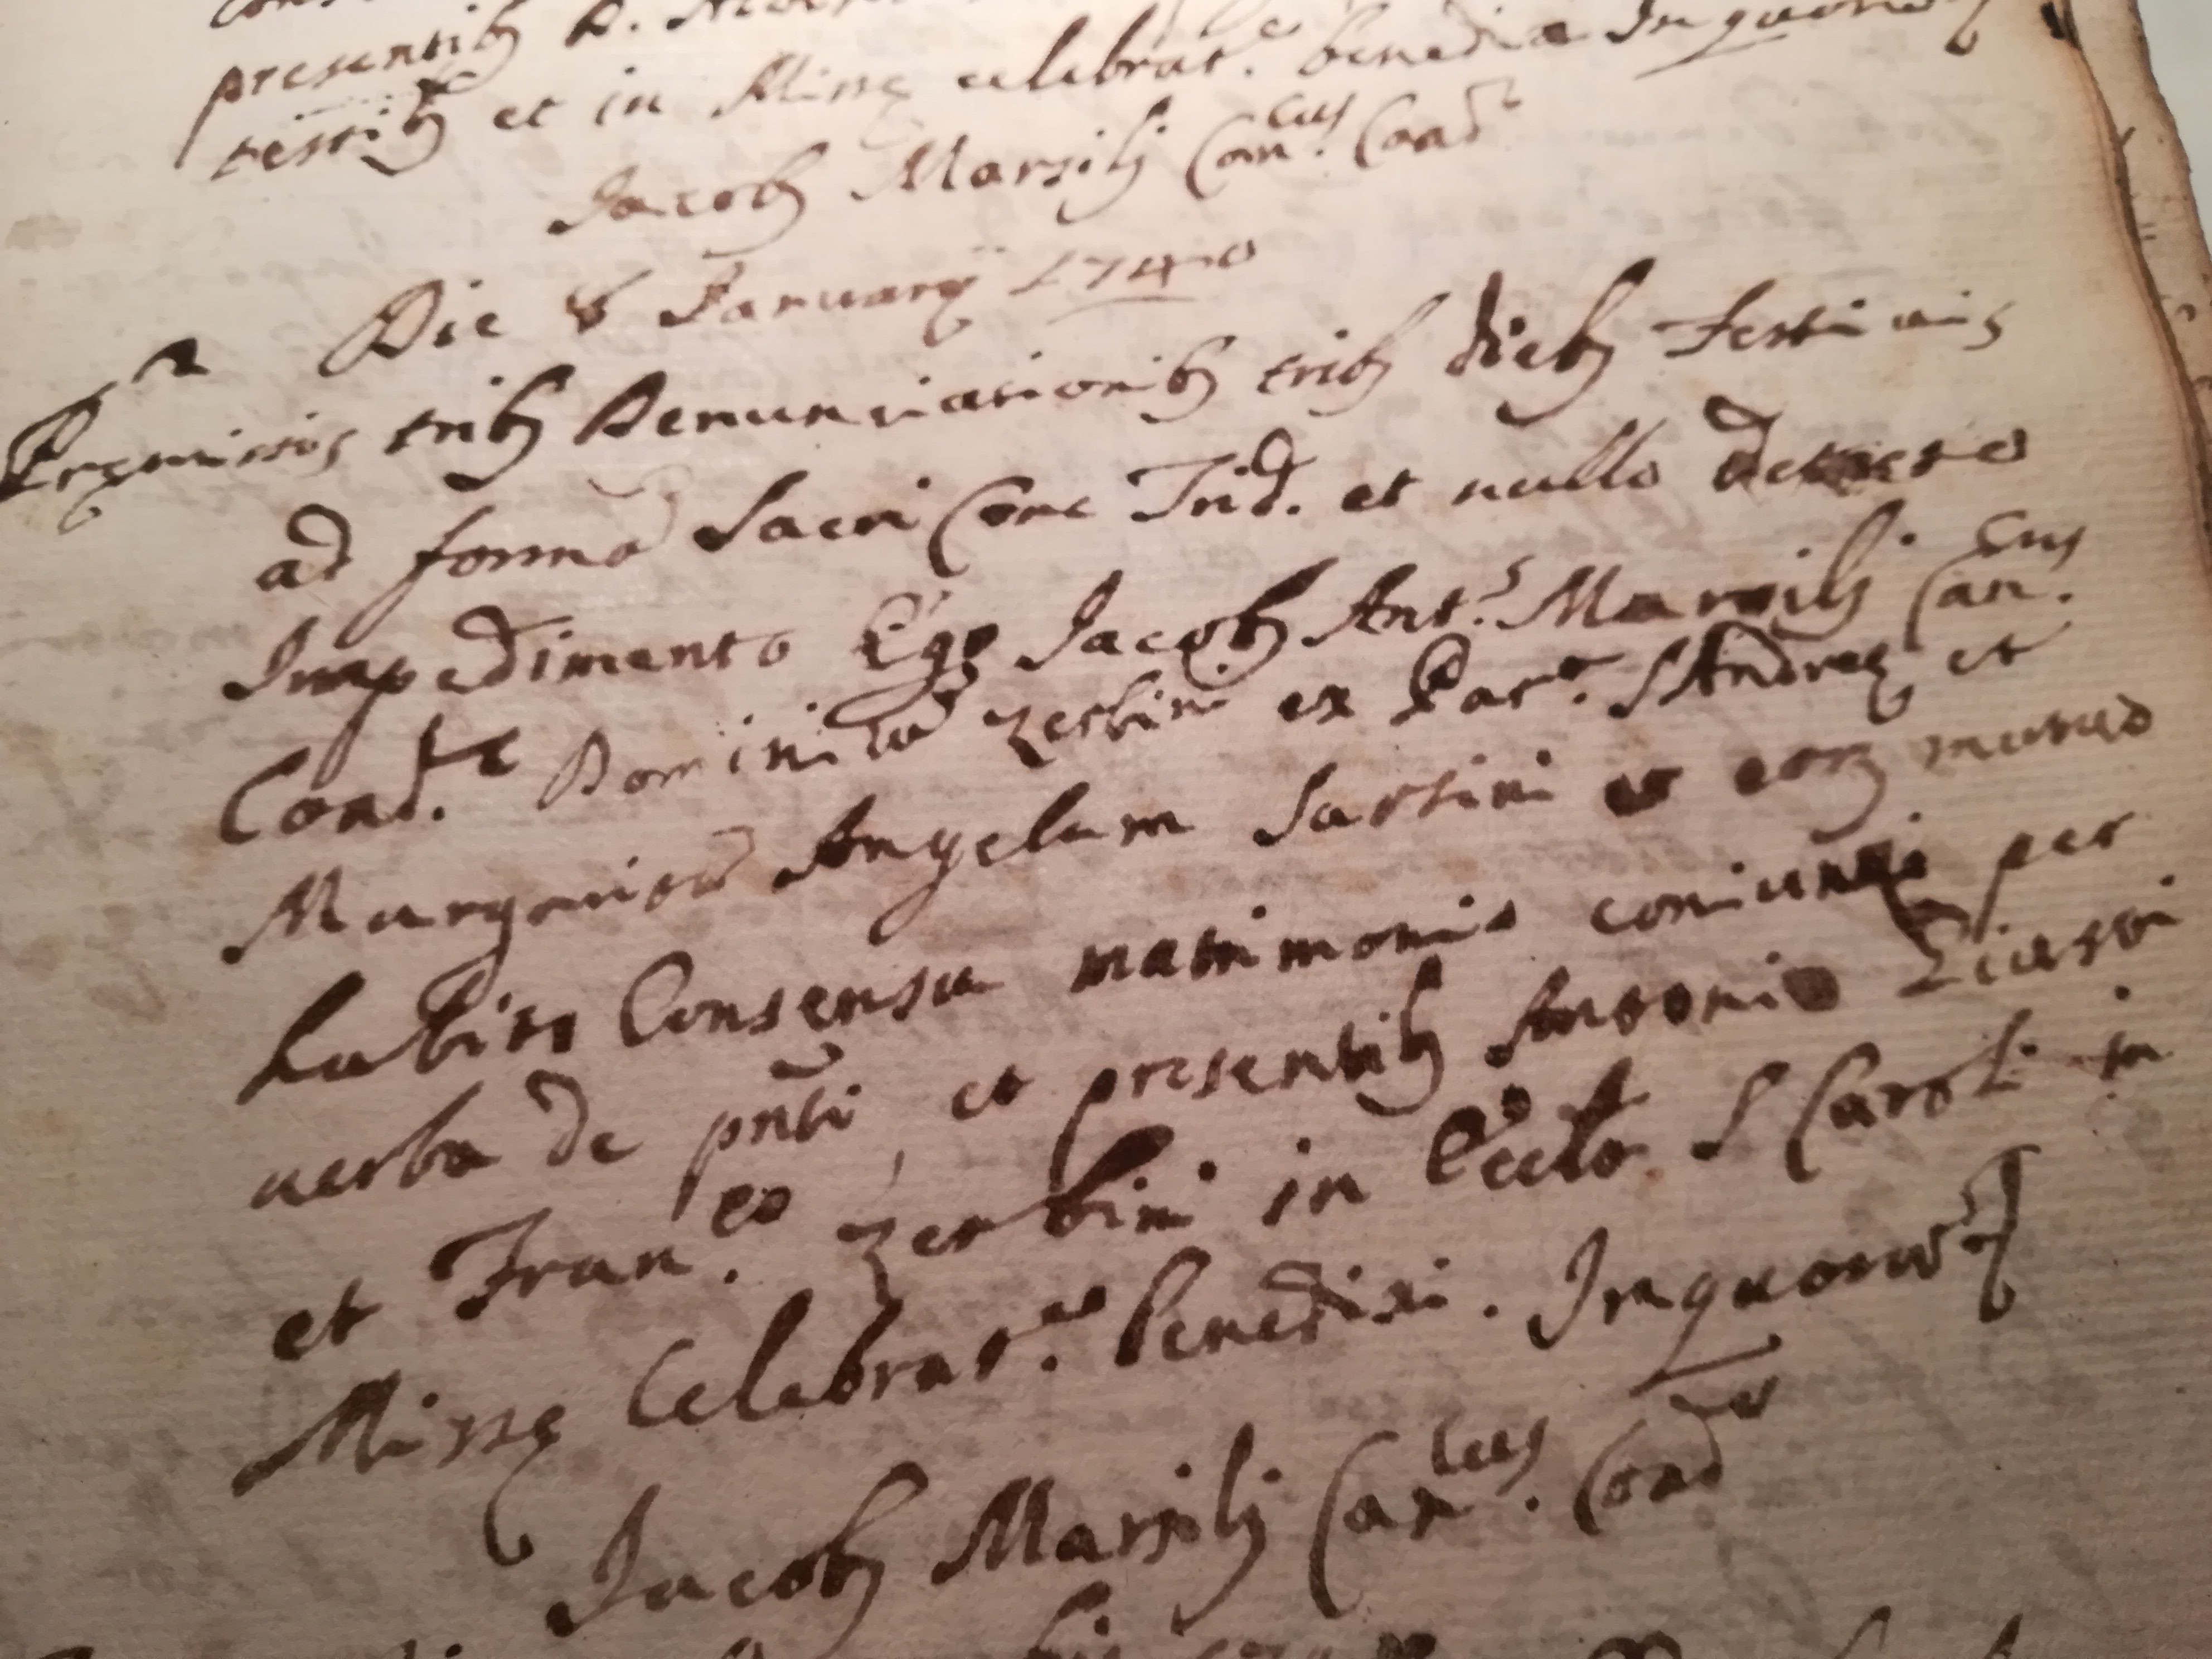 presentib9 D.
testib9 et in Missę celebrat.e benedixi In quoru
Jacob9 Marsilij Can.cus Coad.r
Die 8 January 1740
Pręmissis trib9 Denunciationib9 trib9 dieb9 festiuis
ad formã Sacri Conc Trid. et nullo detecto
Impedimento Ego Jacob9 Ant.s Marsilij Can.cus
Coad.r Dominicũ Zerbini ex Par.e S Andreę et
Margaritã Angelam Sartini et eorũ mutuo
habito Consensu matrimonio coniunxi per
uerba de pñti et presentib9 Antonio
et Fran.co Zerbini in Eccla S Caroli in
Missę Celebrat.ne benedixi. In quorũ
Jacob9 Marsilij Can.cus Coad.r